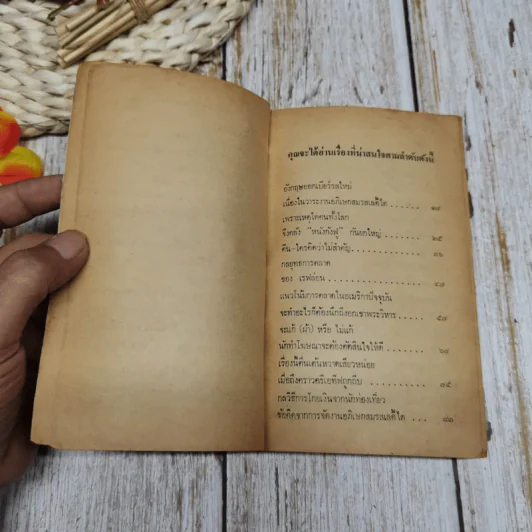 คุณจะได้อ่านเรื่องที่น่าสนใจตามลำดับดังนี้
อังกฤษออกเบียร์รสใหม่
เนื่องในวาระงานอภิเษกสมรสเลดี้ได ......
เพราะเหตุใดคนทั้งโลก
จึงคลั่ง "หนังกังฟู" กันยกใหญ่ ........ ๒๕
คืน-ใครคิดว่าไม่สำคัญ ........ ๓๖
กลยุทธการตลาด
ของ เรฟล่อน ........ ๔๗
แนวโน้มการตลาดในอเมริกาปัจจุบัน
จะทำอะไรก็ต้องนึกถึงยกเขาพระวิหาร ...... ๕๗
จะแก้ (ผ้า) หรือ ไม่แก้
นักทำโฆษณาจะต้องตัดสินใจให้ดี ........ ๖๗
เรื่องนี้ตื่นเต้นหวาดเสียวหน่อย
เมื่อถึงคราวครีเอทีฟถูกถีบ ........ ๗๕
กลวิธีการโกยเงินจากนักท่องเที่ยว
ข้อคิดจากการจัดงานอภิเษกสมรสเลดี้ได ...